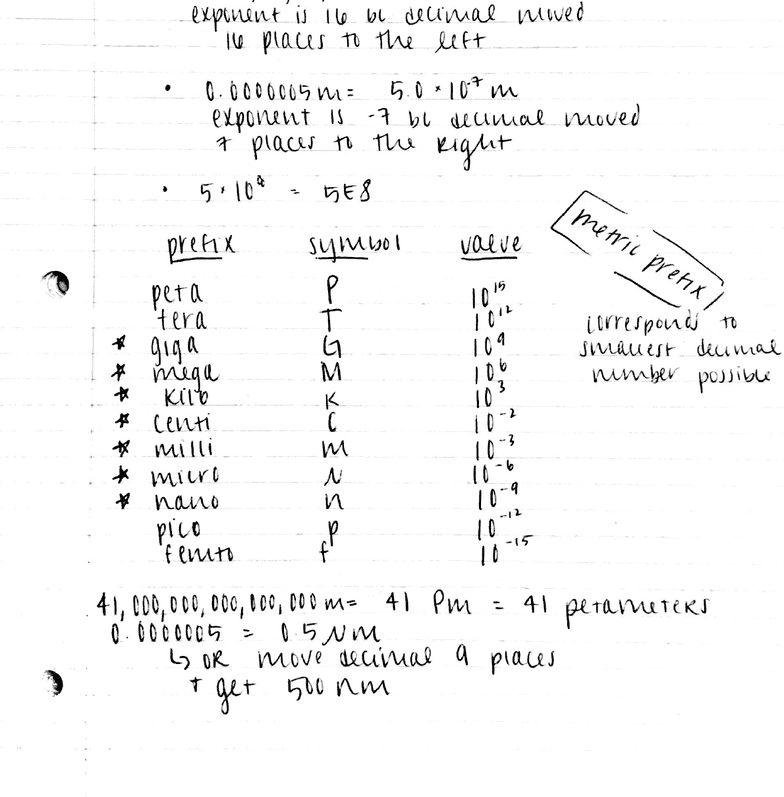 exponent is 16 bc decimal moved
16 places to the left
• 0.0000005m = 5.0 × 10⁻⁷ m
exponent is -7 bc decimal moved
7 places to the right
• 5 · 10⁸ = 5E8
metric prefix
corresponds to
smallest decimal
number possible
prefix symbol value
peta P 10¹⁵
tera T 10¹²
☆ giga G 10⁹
☆ mega M 10⁶
☆ kilo K 10³
☆ centi C 10⁻²
☆ milli m 10⁻³
☆ micro μ 10⁻⁶
☆ nano n 10⁻⁹
pico p 10⁻¹²
femto f 10⁻¹⁵
41,000,000,000,000,000 m = 41 Pm = 41 petameters
0.0000005 = 0.5 μm
↳ OR move decimal 9 places
+ get 500 nm